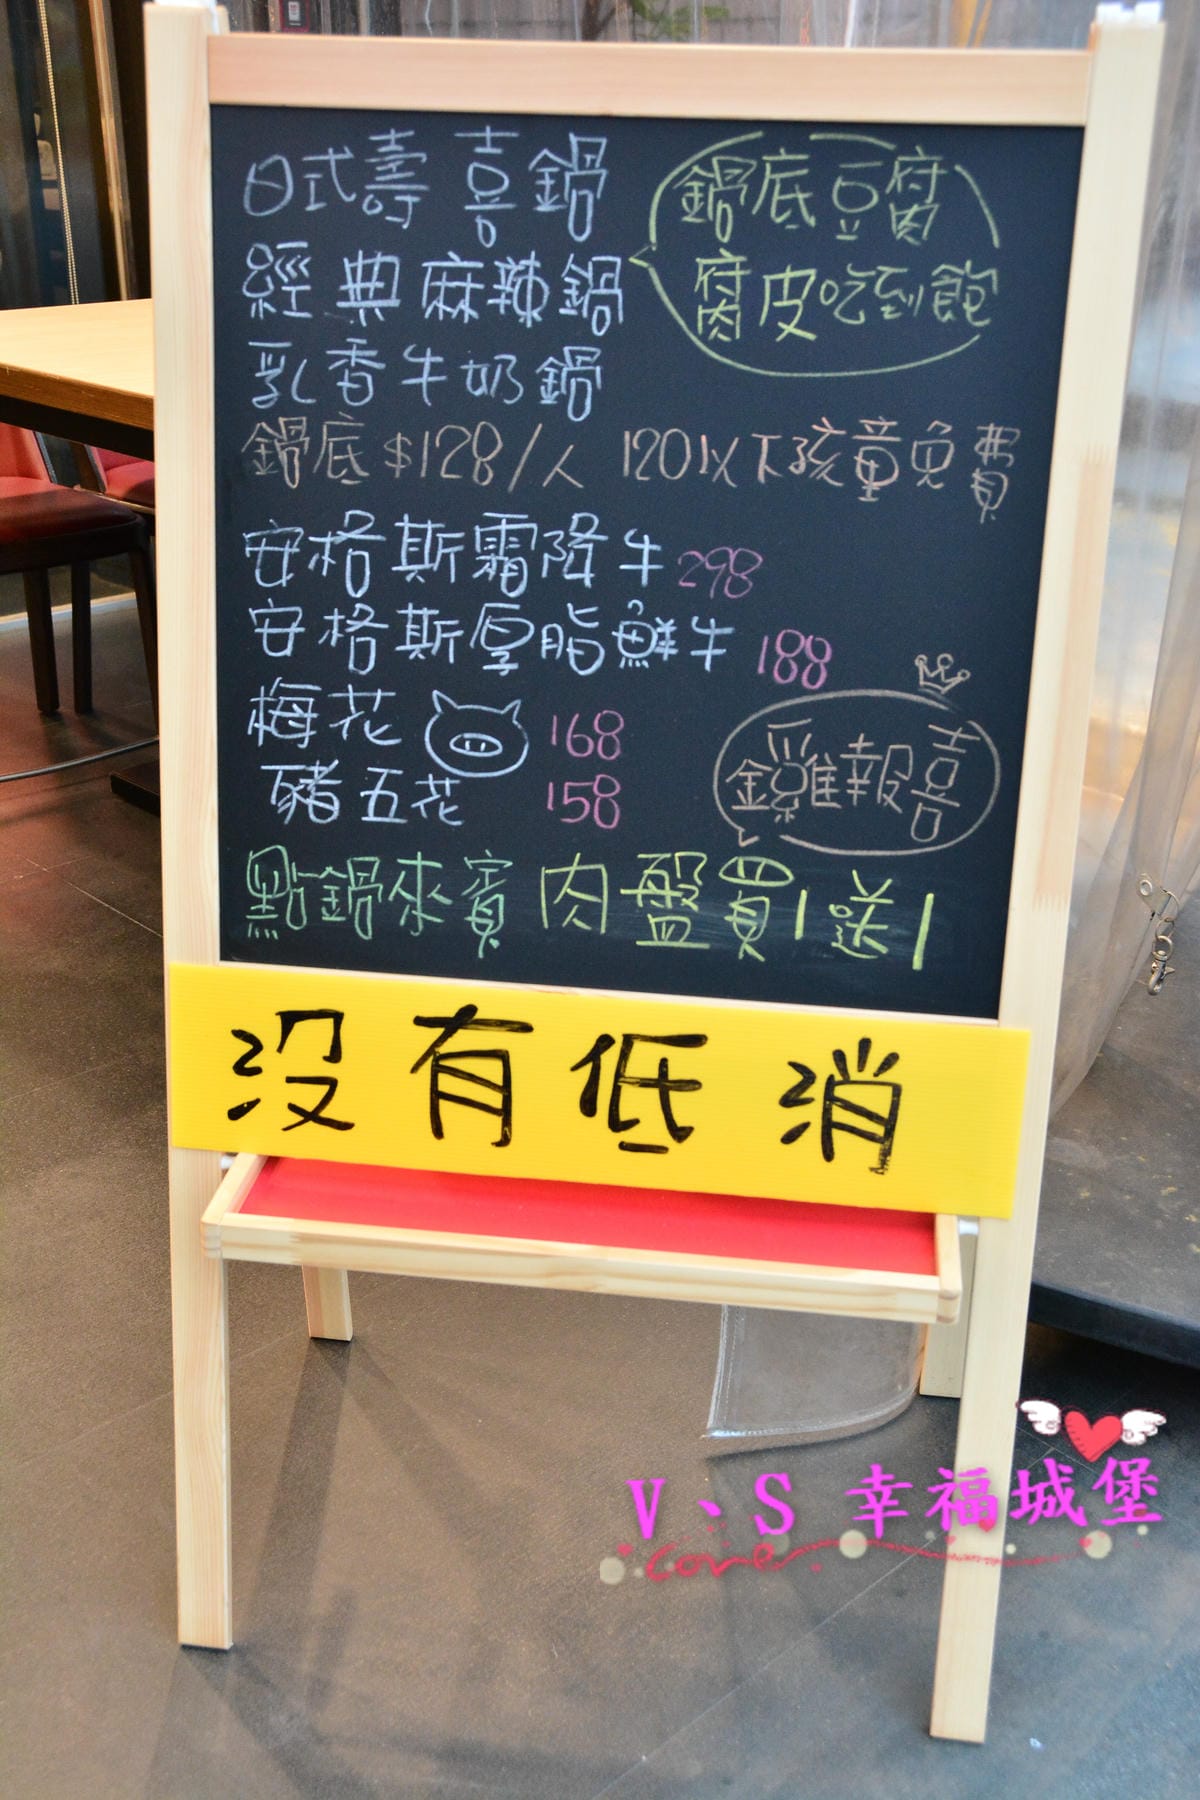 日式壽喜鍋
經典麻辣鍋
乳香牛奶鍋
鍋底豆腐
腐皮吃到飽
鍋底$128/人 120以下孩童免費
安格斯霜降牛 298
安格斯厚脂鮮牛 188
梅花 168
豬五花 158
金雞報喜
點鍋來賓 肉盤買1送1
沒有低消
V、S 幸福城堡